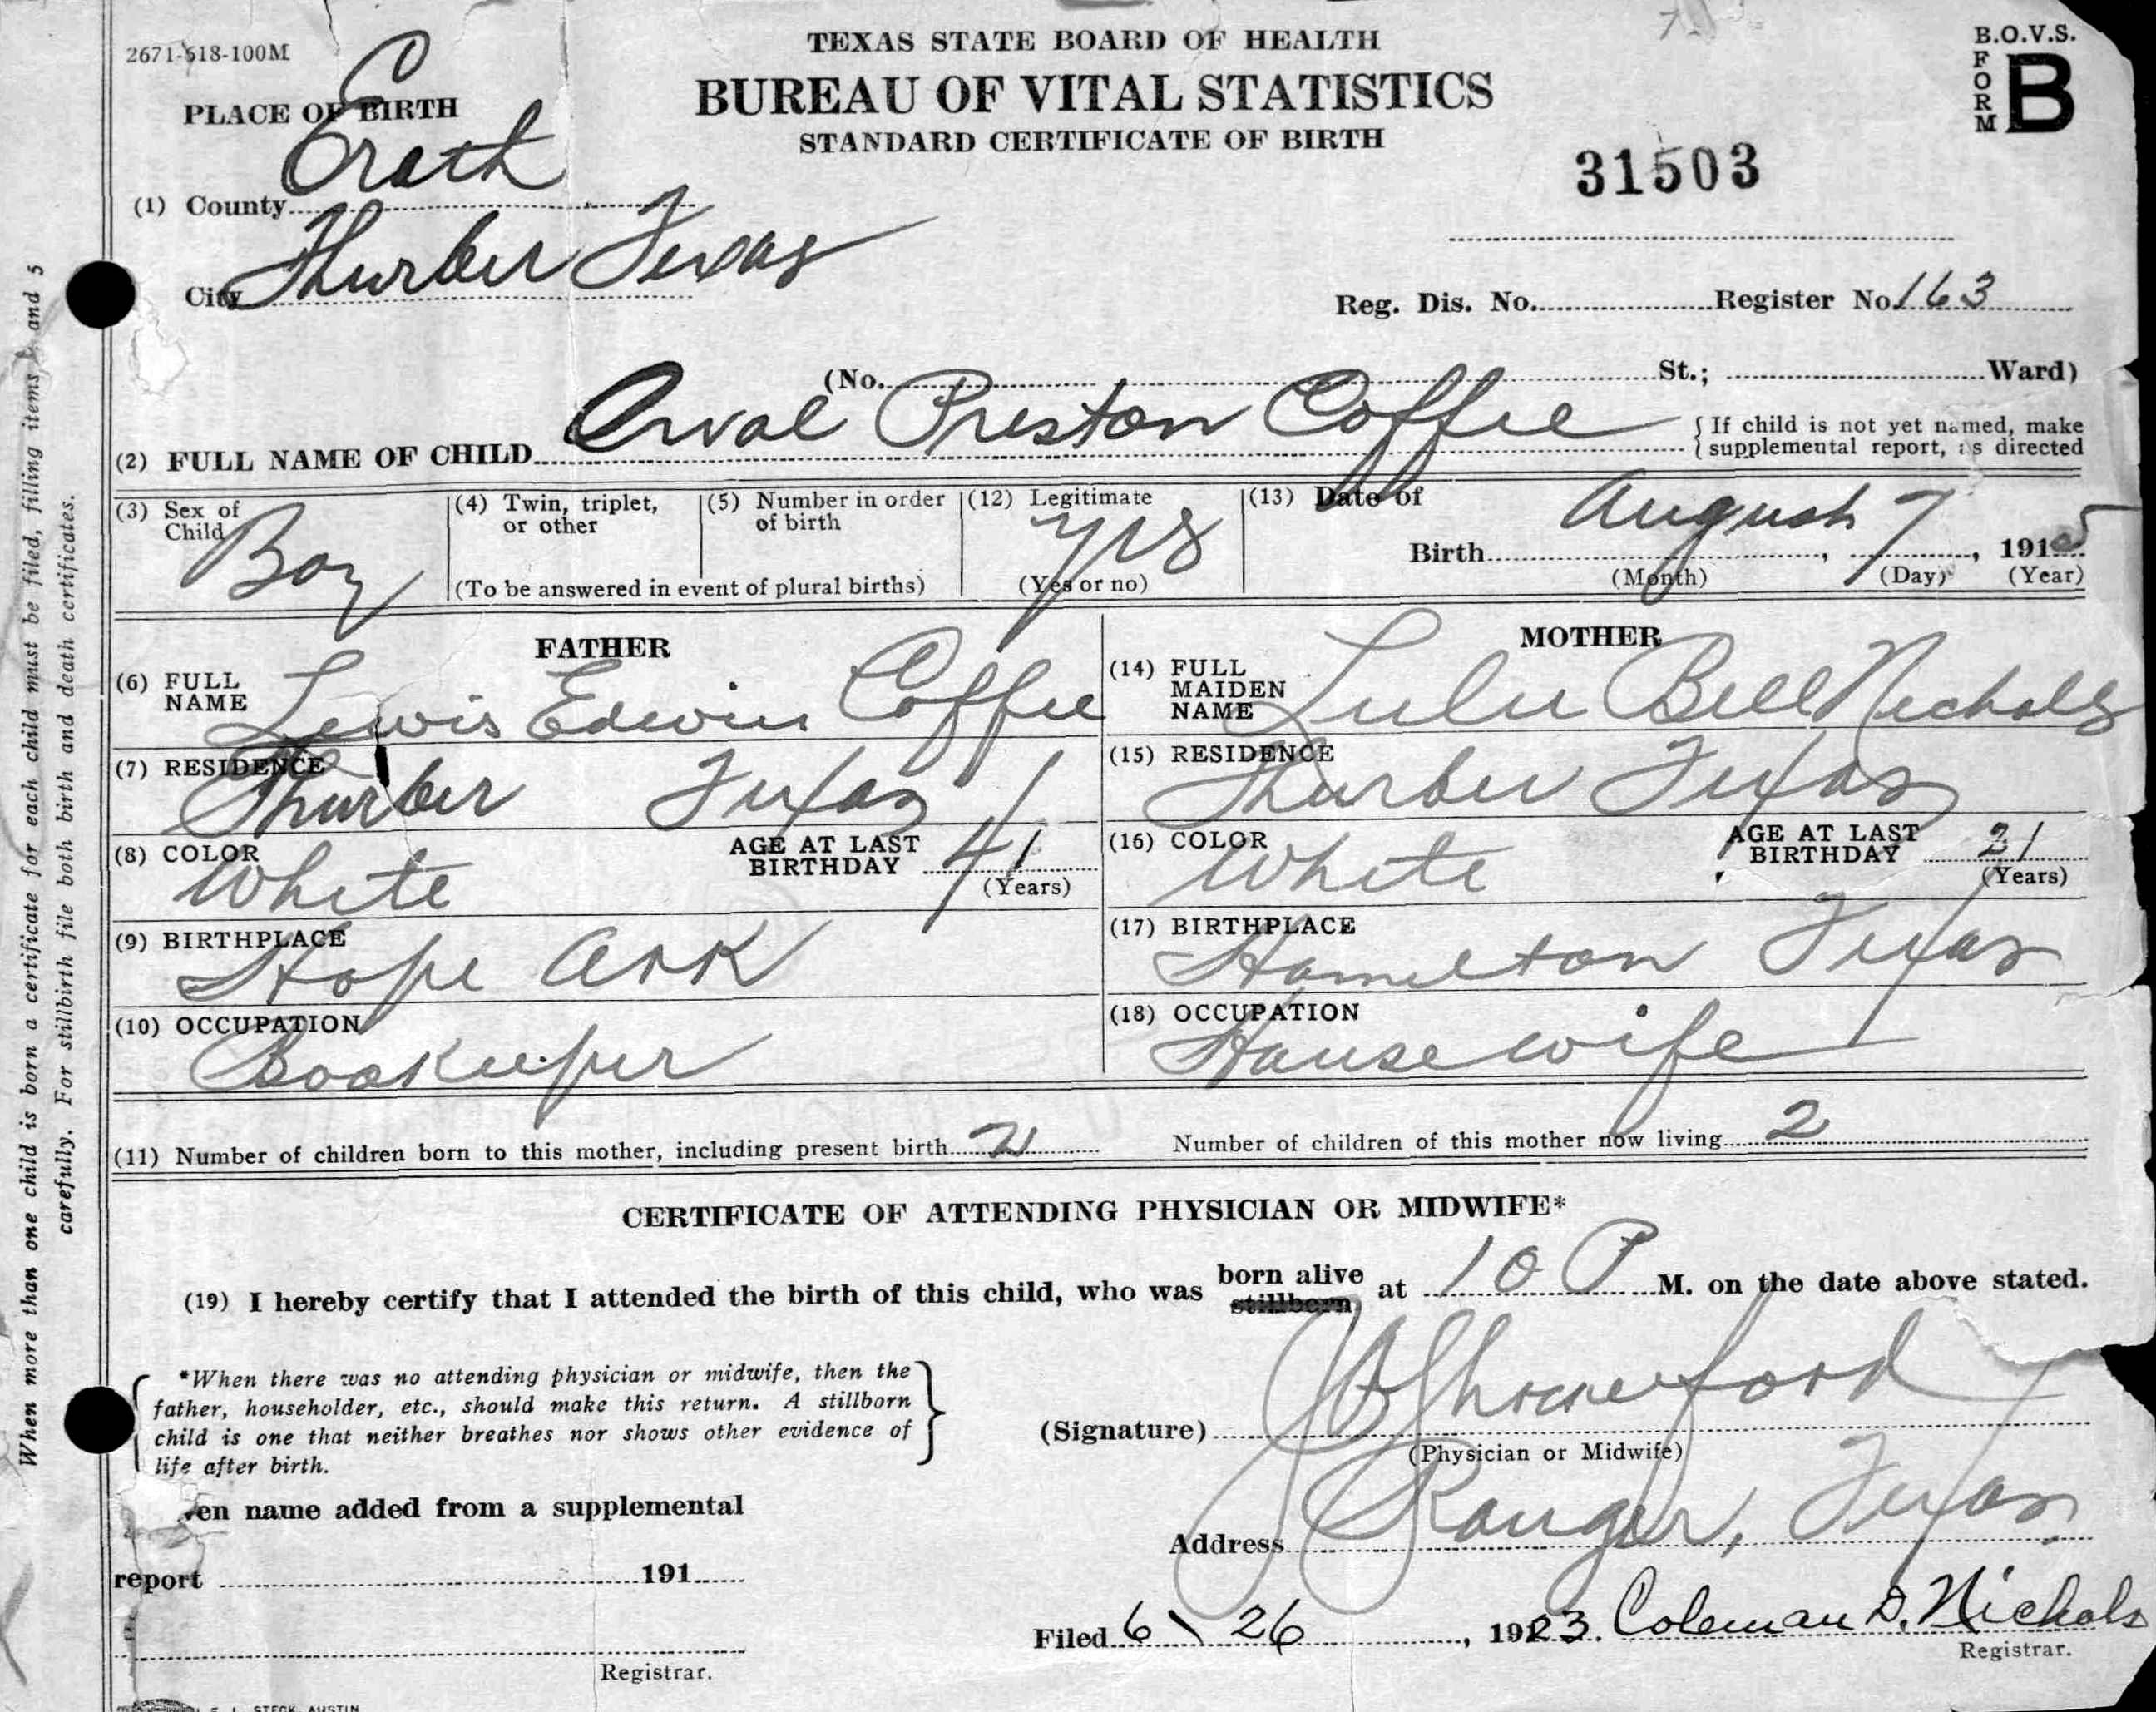 2671-518-100M
TEXAS STATE BOARD OF HEALTH
BUREAU OF VITAL STATISTICS
STANDARD CERTIFICATE OF BIRTH
B.O.V.S.
FORM B
31503
PLACE OF BIRTH
(1) County Erath
City Thurber Texas
Reg. Dis. No. Register No. 163
(No. St.; Ward)
(2) FULL NAME OF CHILD Orval Preston Coffee
{If child is not yet named, make
supplemental report, as directed
(3) Sex of Child Boy
(4) Twin, triplet, or other
(5) Number in order of birth
(To be answered in event of plural births)
(12) Legitimate Yes
(Yes or no)
(13) Date of Birth August 7, 1915
(Month) (Day) (Year)
FATHER
(6) FULL NAME Lewis Edwin Coffee
(7) RESIDENCE Thurber Texas
(8) COLOR White AGE AT LAST BIRTHDAY 41 (Years)
(9) BIRTHPLACE Hope Ark
(10) OCCUPATION Bookeeper
MOTHER
(14) FULL MAIDEN NAME Lulu Bell Nichols
(15) RESIDENCE Thurber Texas
(16) COLOR White AGE AT LAST BIRTHDAY 31 (Years)
(17) BIRTHPLACE Hamilton Texas
(18) OCCUPATION House wife
(11) Number of children born to this mother, including present birth 2 Number of children of this mother now living 2
CERTIFICATE OF ATTENDING PHYSICIAN OR MIDWIFE*
(19) I hereby certify that I attended the birth of this child, who was born alive stillborn at 10 P M. on the date above stated.
*When there was no attending physician or midwife, then the
father, householder, etc., should make this return. A stillborn
child is one that neither breathes nor shows other evidence of
life after birth.
(Signature)
(Physician or Midwife)
en name added from a supplemental
report 191
Address Ranger, Texas
Filed 6 \ 26, 1923. Coleman D. Nichols
Registrar.
Registrar.
STECK, AUSTIN
When more than one child is born a certificate for each child must be filed, filling items 4 and 5
carefully. For stillbirth file both birth and death certificates.